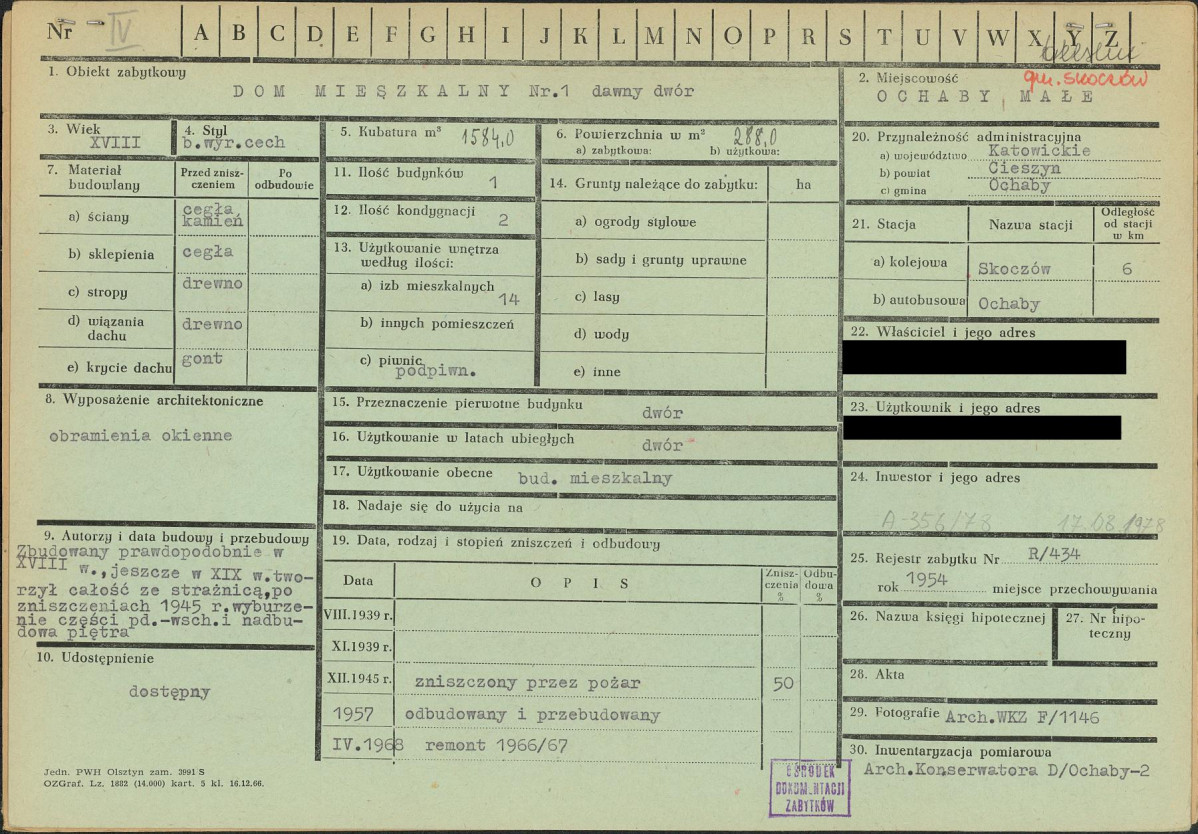 Nr IV A B C D E F G H I J K L M N O P R S T U V W X Y Z
gm. Skoczów
1. Obiekt zabytkowy
DOM MIESZKALNY Nr.1 dawny dwór
2. Miejscowość
OCHABY MAŁE
3. Wiek
XVIII
4. Styl
b.wyr.cech
5. Kubatura m³ 1584,0
6. Powierzchnia w m² 288,0
a) zabytkowa: b) użytkowa:
7. Materiał budowlany
Przed zniszczeniem
Po odbudowie
a) ściany cegła kamień
b) sklepienia cegła
c) stropy drewno
d) wiązania dachu drewno
e) krycie dachu gont
8. Wyposażenie architektoniczne
obramienia okienne
9. Autorzy i data budowy i przebudowy
Zbudowany prawdopodobnie w
XVIII w., jeszcze w XIX w.two-
rzył całość ze strażnicą,po
zniszczeniach 1945 r.wyburze-
nie części pd.-wsch.i nadbu-
dowa piętra
10. Udostępnienie
dostępny
11. Ilość budynków 1
12. Ilość kondygnacji 2
13. Użytkowanie wnętrza
według ilości:
a) izb mieszkalnych 14
b) innych pomieszczeń
c) piwnic podpiwn.
14. Grunty należące do zabytku: ha
a) ogrody stylowe
b) sady i grunty uprawne
c) lasy
d) wody
e) inne
15. Przeznaczenie pierwotne budynku dwór
16. Użytkowanie w latach ubiegłych dwór
17. Użytkowanie obecne bud. mieszkalny
18. Nadaje się do użycia na
19. Data, rodzaj i stopień zniszczeń i odbudowy
Data OPIS Znisz-czenia % Odbu-dowa %
VIII.1939 r.
XI.1939 r.
XII.1945 r. zniszczony przez pożar 50
1957 odbudowany i przebudowany
IV.1968 remont 1966/67
20. Przynależność administracyjna
a) województwo Katowickie
b) powiat Cieszyn
c) gmina Ochaby
21. Stacja Nazwa stacji Odległość od stacji w km
a) kolejowa Skoczów 6
b) autobusowa Ochaby
22. Właściciel i jego adres
23. Użytkownik i jego adres
24. Inwestor i jego adres
A-356/78 17.08.1978
25. Rejestr zabytku Nr R/434
rok 1954 miejsce przechowywania
26. Nazwa księgi hipotecznej
27. Nr hipo-
teczny
28. Akta
29. Fotografie Arch.WKZ F/1146
30. Inwentaryzacja pomiarowa
Arch.Konserwatora D/Ochaby-2
Jedn. PWH Olsztyn zam. 3991 S
OZGraf. Lz. 1882 (14.000) kart. 5 kl. 16.12.66.
OŚRODEK
DOKUMENTACJI
ZABYTKÓW